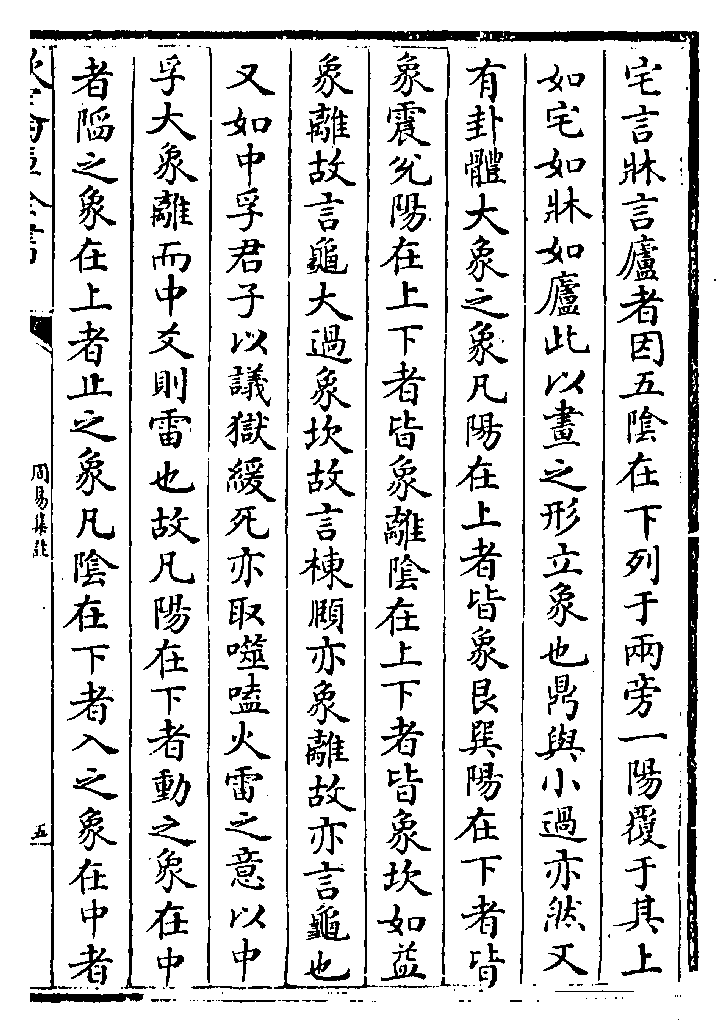 宅言牀言廬者因五陰在下列于兩旁一陽覆于其上
如宅如牀如廬此以畫之形立象也鼎與小過亦然又
有卦體大象之象凡陽在上者皆象艮巽陽在下者皆
象震兌陽在上下者皆象離陰在上下者皆象坎如益
象離故言龜大過象坎故言棟頤亦象離故亦言龜也
又如中孚君子以議獄緩死亦取噬嗑火雷之意以中
孚大象離而中爻則雷也故凡陽在下者動之象在中
者陷之象在上者止之象凡陰在下者入之象在中者
欽定四庫全書
周易集註
五